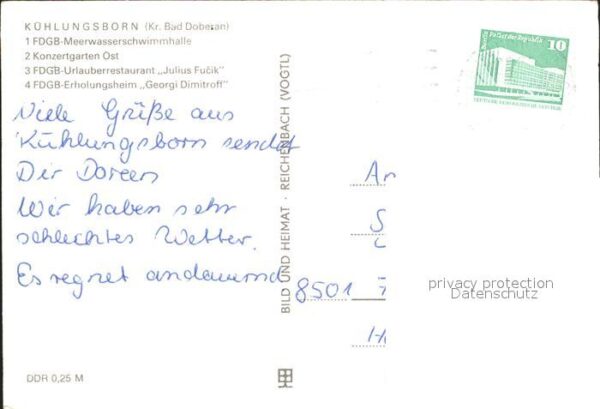 KÜHLUNGSBORN (Kr. Bad Doberan)
1 FDGB-Meerwasserschwimmhalle
2 Konzertgarten Ost
3 FDGB-Urlauberrestaurant „Julius Fučik"
4 FDGB-Erholungsheim „Georgi Dimitroff"
Viele Grüße aus
Kühlungsborn sendet
Dir Doreen
Wir haben sehr
schlechtes Wetter.
Es regnet andauernd
DDR 0,25 M
BILD UND HEIMAT · REICHENBACH (VOGTL)
Berlin Palast der Republik
10
An
8501
privacy protection
Datenschutz